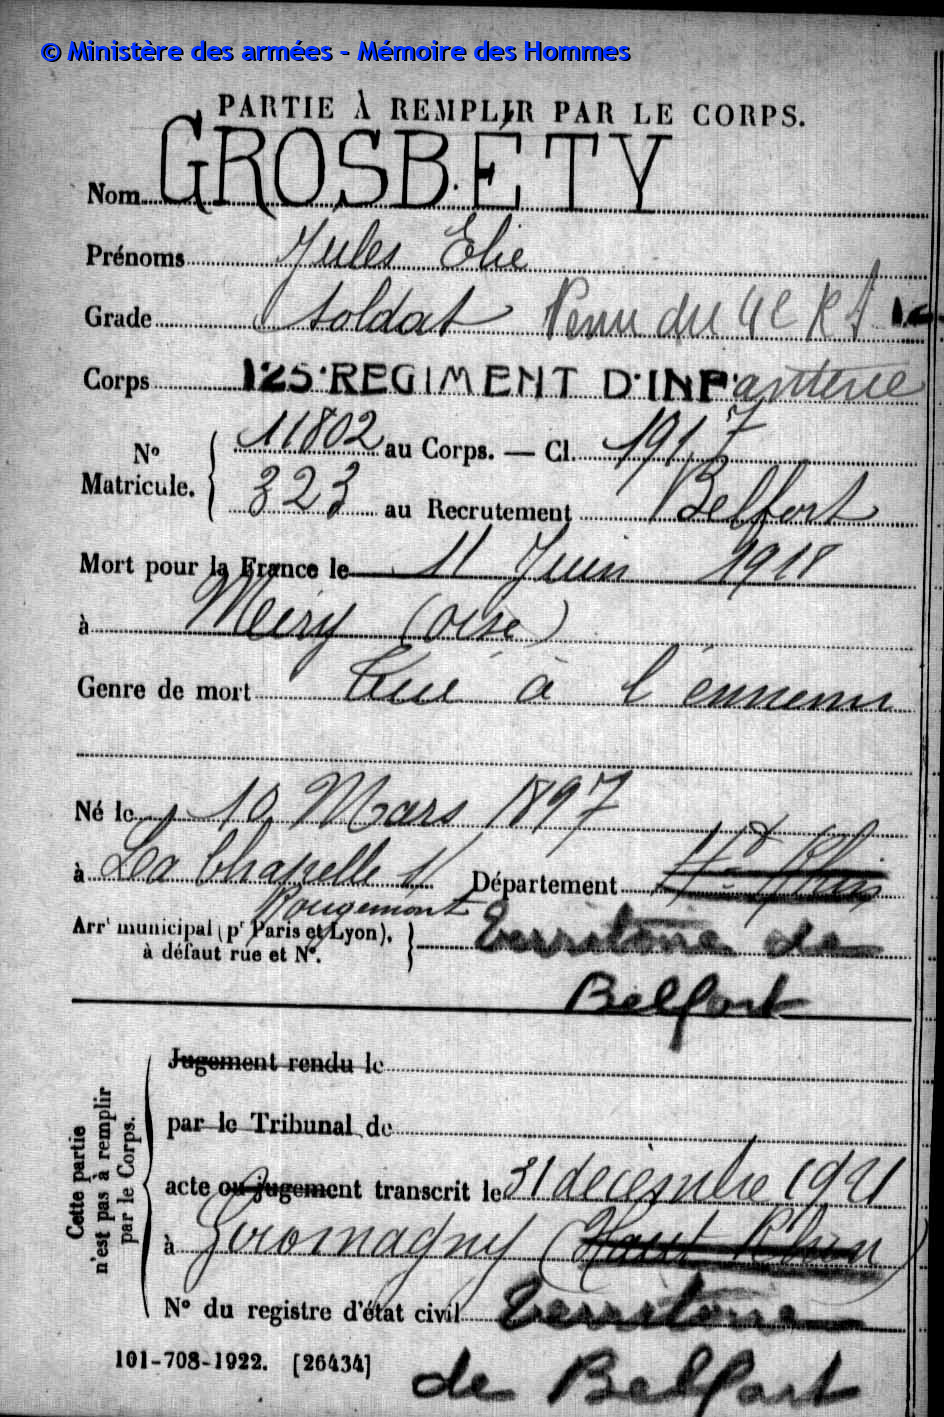 © Ministère des armées - Mémoire des Hommes
PARTIE À REMPLIR PAR LE CORPS.
Nom GROSBÉTY
Prénoms Jules Elie
Grade soldat Venu du 42e R I
Corps 125e REGIMENT D'INFanterie
No Matricule. { 11802 au Corps. — Cl. 1917
323 au Recrutement Belfort
Mort pour la France le 11 Juin 1918
à Méry (oise)
Genre de mort Tué à l'ennemi
Né le 10 Mars 1897
à La Chapelle s/ Département Ht Rhin
Rougemont
Arrt municipal (pr Paris et Lyon), à défaut rue et No. } Territoire de
Belfort
Cette partie n'est pas à remplir par le Corps.
Jugement rendu le
par le Tribunal de
acte ou jugement transcrit le 31 décembre 1921
à Giromagny (Haut Rhin)
No du registre d'état civil Territoire
101-708-1922. [26434] de Belfort